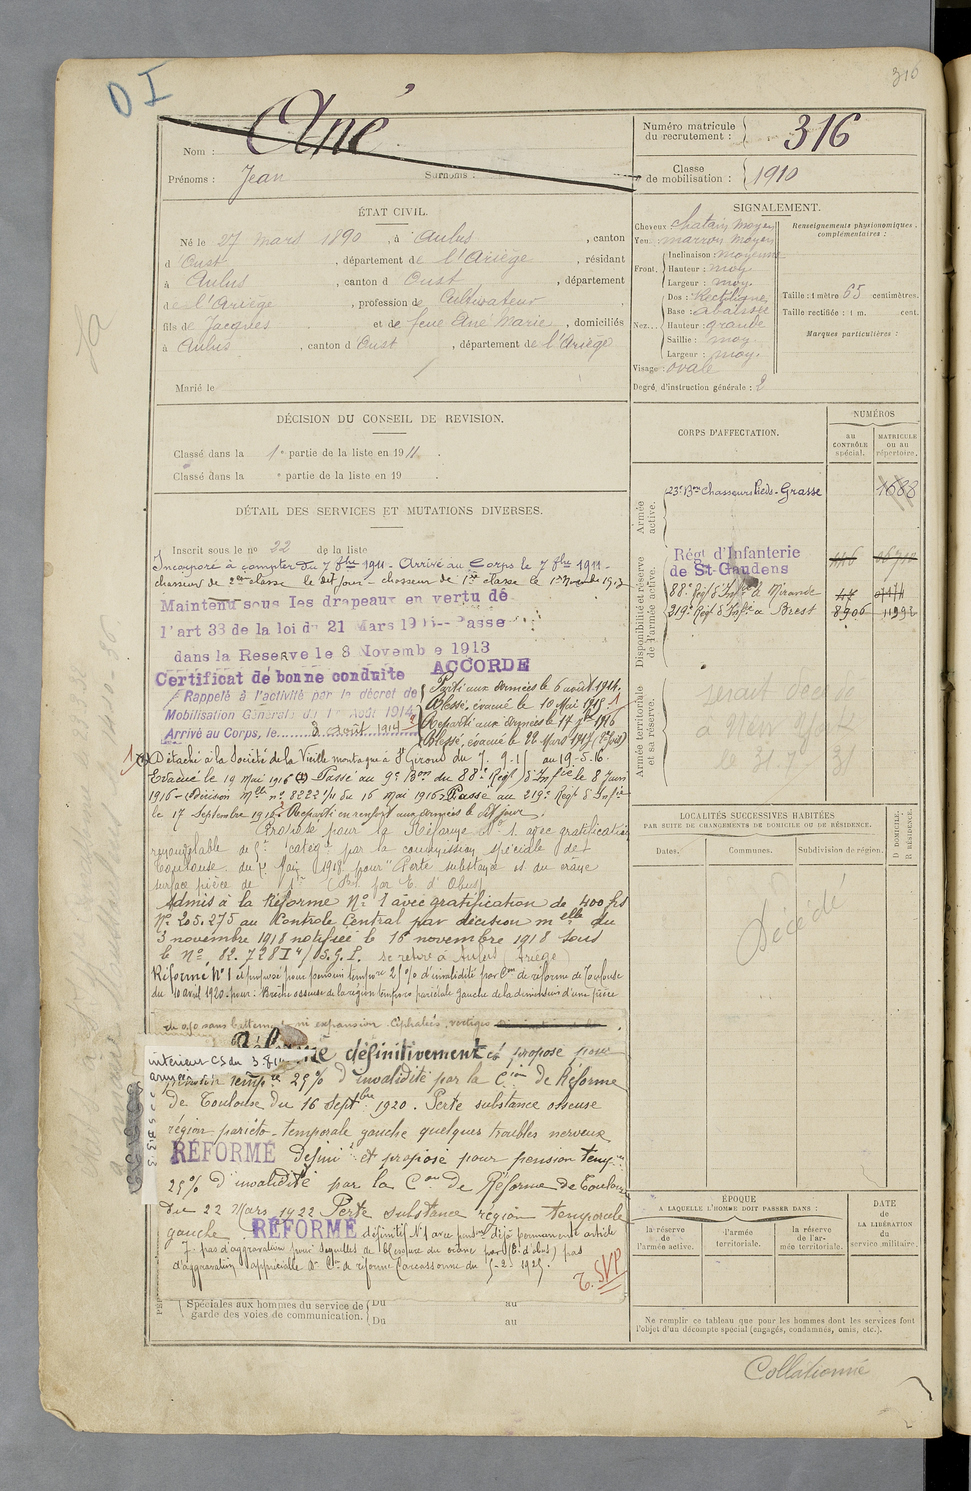 316
D I
Nom : Ané
Prénoms : Jean Surnoms :
Numéro matricule
du recrutement : 316
Classe
de mobilisation : 1910
ÉTAT CIVIL.
Né le 27 Mars 1890, à Aulus, canton
d'Oust, département de l'Ariège, résidant
à Aulus, canton d'Oust, département
de l'Ariège, profession de Cultivateur
fils de Jacques et de feue Ané Marie, domiciliés
à Aulus, canton d'Oust, département de l'Ariège
Marié le
SIGNALEMENT.
Cheveux chatain moyen
Yeux marron moyen
Front. Inclinaison : moyenne
Hauteur : moy
Largeur : moy.
Nez... Dos : Rectiligne
Base : abaissée
Hauteur : grande
Saillie : moy
Largeur : moy.
Visage : ovale
Degré d'instruction générale : 2
Renseignements physionomiques
complémentaires :
Taille : 1 mètre 65 centimètres.
Taille rectifiée : 1 m. cent.
Marques particulières :
DÉCISION DU CONSEIL DE REVISION.
Classé dans la 1e partie de la liste en 1911.
Classé dans la e partie de la liste en 19 .
DÉTAIL DES SERVICES ET MUTATIONS DIVERSES.
Inscrit sous le no 22 de la liste
Incorporé à compter du 7 8bre 1911 - Arrivé au Corps le 7 8bre 1911 -
chasseur de 2eme classe le dit jour - chasseur de 1re classe le
Maintenu sous les drapeaux en vertu de
l'art 33 de la loi du 21 Mars 1905 -- Passé
dans la Reserve le 8 Novembre 1913
Certificat de bonne conduite ACCORDÉ
Rappelé à l'activité par le décret de
Mobilisation Générale du 1er Août 1914
Arrivé au Corps, le 3 août 1914
Parti aux armées le 6 août 1914.
Blessé, évacué le 10 Mai 1915
Reparti aux armées le 17 1916
Blessé, évacué le 22 Mars 1917
Détaché à la Société de la Vieille montagne à St Girons du 7.9.15 au 19.5.16.
Evacué le 19 Mai 1916 Passé au 9e Bon du 88e Régt d'Infie le 8 Juin
1916 - (Décision Melle no 8222 du 16 Mai 1916) Passé au 219e Régt d'Infie
le 17 Septembre 1916. Reparti en renfort aux armées le dit jour.
Proposé pour la Réforme No 1 avec gratification
renouvelable de categ. par la commission spéciale de
Toulouse du Mai 1918 pour "Perte substance os. du crâne
surface pièce de par E. d'Obus
Admis à la Réforme No 1 avec gratification de 400 frs
No 205.275 au Controle Central par décision melle du
3 novembre 1918 notifiée le 16 novembre 1918 sous
le No 82.728 se retire à Aulus (Ariège)
Réformé No 1 et proposé pour pension tempre 25% d'invalidité par Con de réforme de Toulouse
du 10 avril 1920 - pour : Brèche osseuse de la région temporo pariétale gauche de la dimension d'une pièce
de 0,50 sans battements ni expansion Céphalées, vertiges
Réformé définitivement et proposé pour
intérieur CS du
pension tempre 25% d'invalidité par la Cion de Réforme
de Toulouse du 16 Septbre 1920. Perte substance osseuse
région pariéto-temporale gauche quelques troubles nerveux
RÉFORMÉ Défini et proposé pour pension temp
25% d'invalidité par la Con de Réforme de Toulouse
du 22 Mars 1922 Perte substance région temporale
gauche. RÉFORMÉ définitif No 1 avec pension déjà permanente article
7. pas d'aggravation pour séquelles de blessure du crâne par (E. d'obus) pas
d'aggravation appréciable Con de réforme Carcassonne du
T. SVP
Spéciales aux hommes du service de
garde des voies de communication.
Du au
Du au
CORPS D'AFFECTATION.
NUMÉROS
au
CONTRÔLE
spécial.
MATRICULE
ou au
répertoire.
Armée
active.
23e Bon Chasseurs Pieds - Grasse 1688
Disponibilité et réserve
de l'armée active.
Régt d'Infanterie
de St Gaudens 446
88e Régt d'Infie à Mirande
219e Régt d'Infie à Brest 8906
Armée territoriale
et sa réserve.
serait décédé
à New York
le 31.7.31
LOCALITÉS SUCCESSIVES HABITÉES
PAR SUITE DE CHANGEMENTS DE DOMICILE OU DE RÉSIDENCE.
Dates. Communes. Subdivision de région.
D DOMICILE.
R RÉSIDENCE.
Décédé
ÉPOQUE
A LAQUELLE L'HOMME DOIT PASSER DANS :
la réserve
de
l'armée active.
l'armée
territoriale.
la réserve
de l'ar-
mée territoriale.
DATE
de
LA LIBÉRATION
du
service militaire.
Ne remplir ce tableau que pour les hommes dont les services font
l'objet d'un décompte spécial (engagés, condamnés, omis, etc.).
Collationné